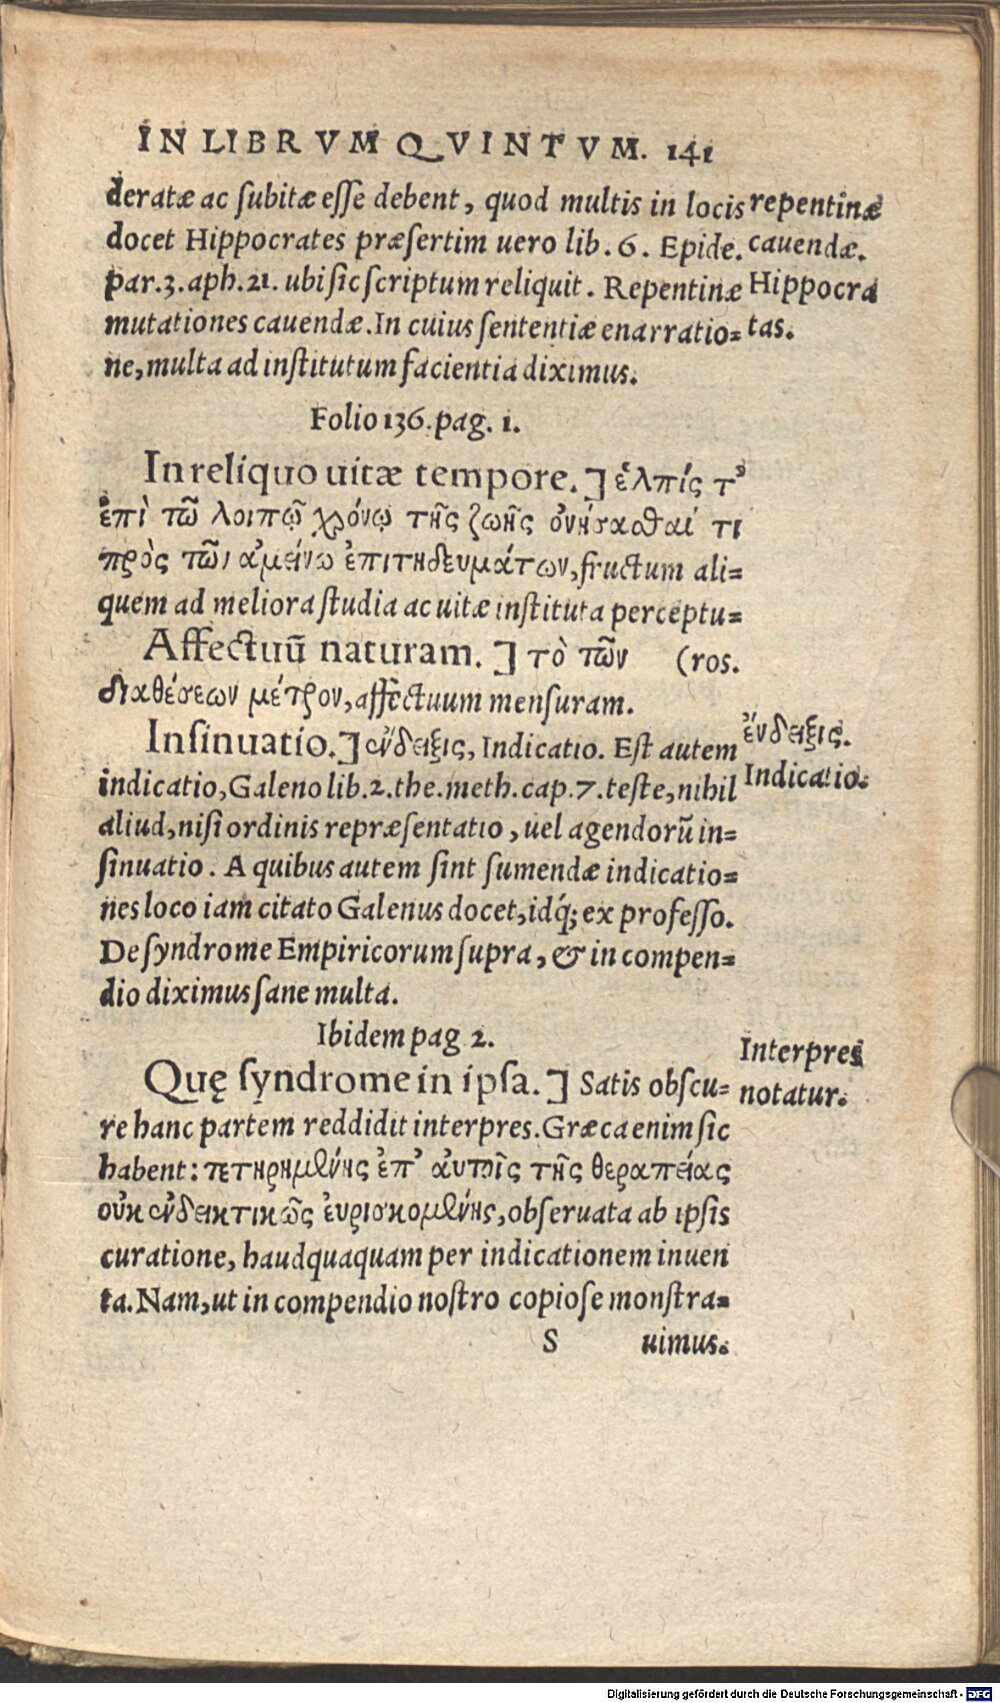 IN LIBRVM QVINTVM. 141
deratæ ac ſubitæ eſſe debent, quod multis in locis
docet Hippocrates præſertim uero lib. 6. Epide.
par.3.aph.21. ubi ſic ſcriptum reliquit. Repentinæ
mutationes cauendæ. In cuius ſententiæ enarratio=
ne, multa ad inſtitutum facientia diximus.
repentinæ
cauendæ.
Hippocra
tas.
Folio 136. pag. 1.
In reliquo uitæ tempore.] ἐλπίς
ἐπὶ τῶ λοιπῷ χρόνῳ τῆς ζωῆς ὀνήσασθαί τι
πρὸς τῶν ἀμείνω ἐπιτηδευμάτων, fructum ali=
quem ad meliora ſtudia ac uitæ inſtituta perceptu=
Affectuū naturam.] τὸ τῶν (ros.
διαθέσεων μέτρον, affectuum menſuram.
Inſinuatio.] ἔνδειξις, Indicatio. Eſt autem
indicatio, Galeno lib.2. the. meth. cap.7. teſte, nihil
aliud, niſi ordinis repræſentatio, uel agendorū in=
ſinuatio. A quibus autem ſint ſumendæ indicatio=
nes loco iam citato Galenus docet, idq́; ex profeſſo.
De ſyndrome Empiricorum ſupra, & in compen=
dio diximus ſane multa.
ἔνδειξις.
Indicatio.
Ibidem pag 2.
Quę ſyndrome in ipſa.] Satis obſcu=
re hanc partem reddidit interpres. Græca enim ſic
habent: τετηρημένης ἐπ' αυτοῖς τῆς θεραπείας
οὐκ ἐνδεικτικῶς ἐυρισκομένης, obſeruata ab ipſis
curatione, haudquaquam per indicationem inuen
ta. Nam, ut in compendio noſtro copioſe monſtra=
Interpres
notatur.
S uimus.
Digitalisierung gefördert durch die Deutsche Forschungsgemeinschaft - DFG